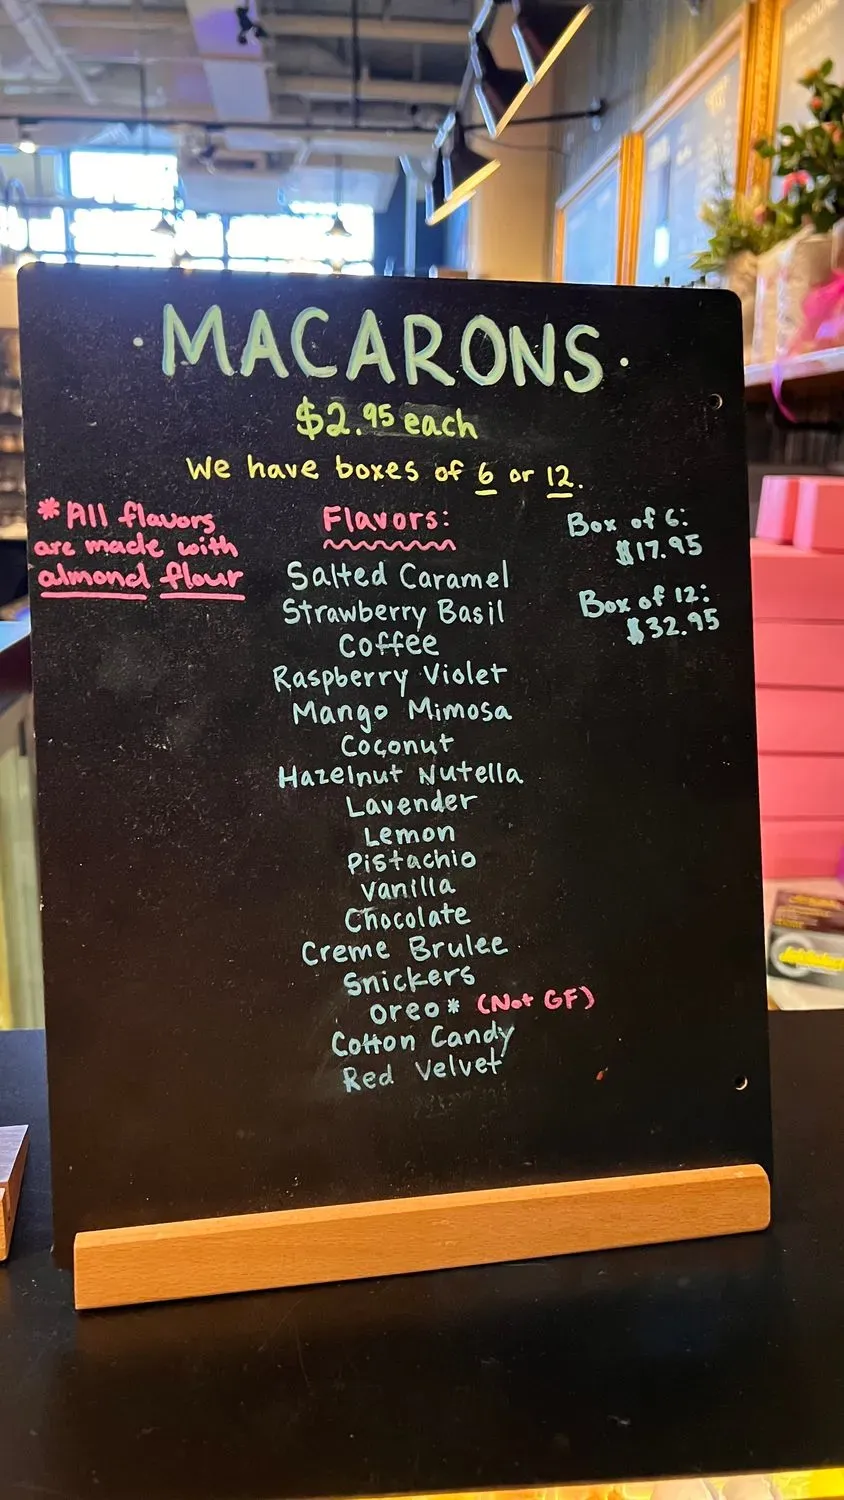 · MACARONS ·
$2.95 each
We have boxes of 6 or 12.
*All flavors
are made with
almond flour
Flavors:
Salted Caramel
Strawberry Basil
Coffee
Raspberry Violet
Mango Mimosa
Coconut
Hazelnut Nutella
Lavender
Lemon
Pistachio
Vanilla
Chocolate
Creme Brulee
Snickers
Oreo* (Not GF)
Cotton Candy
Red Velvet
Box of 6:
$17.95
Box of 12:
$32.95